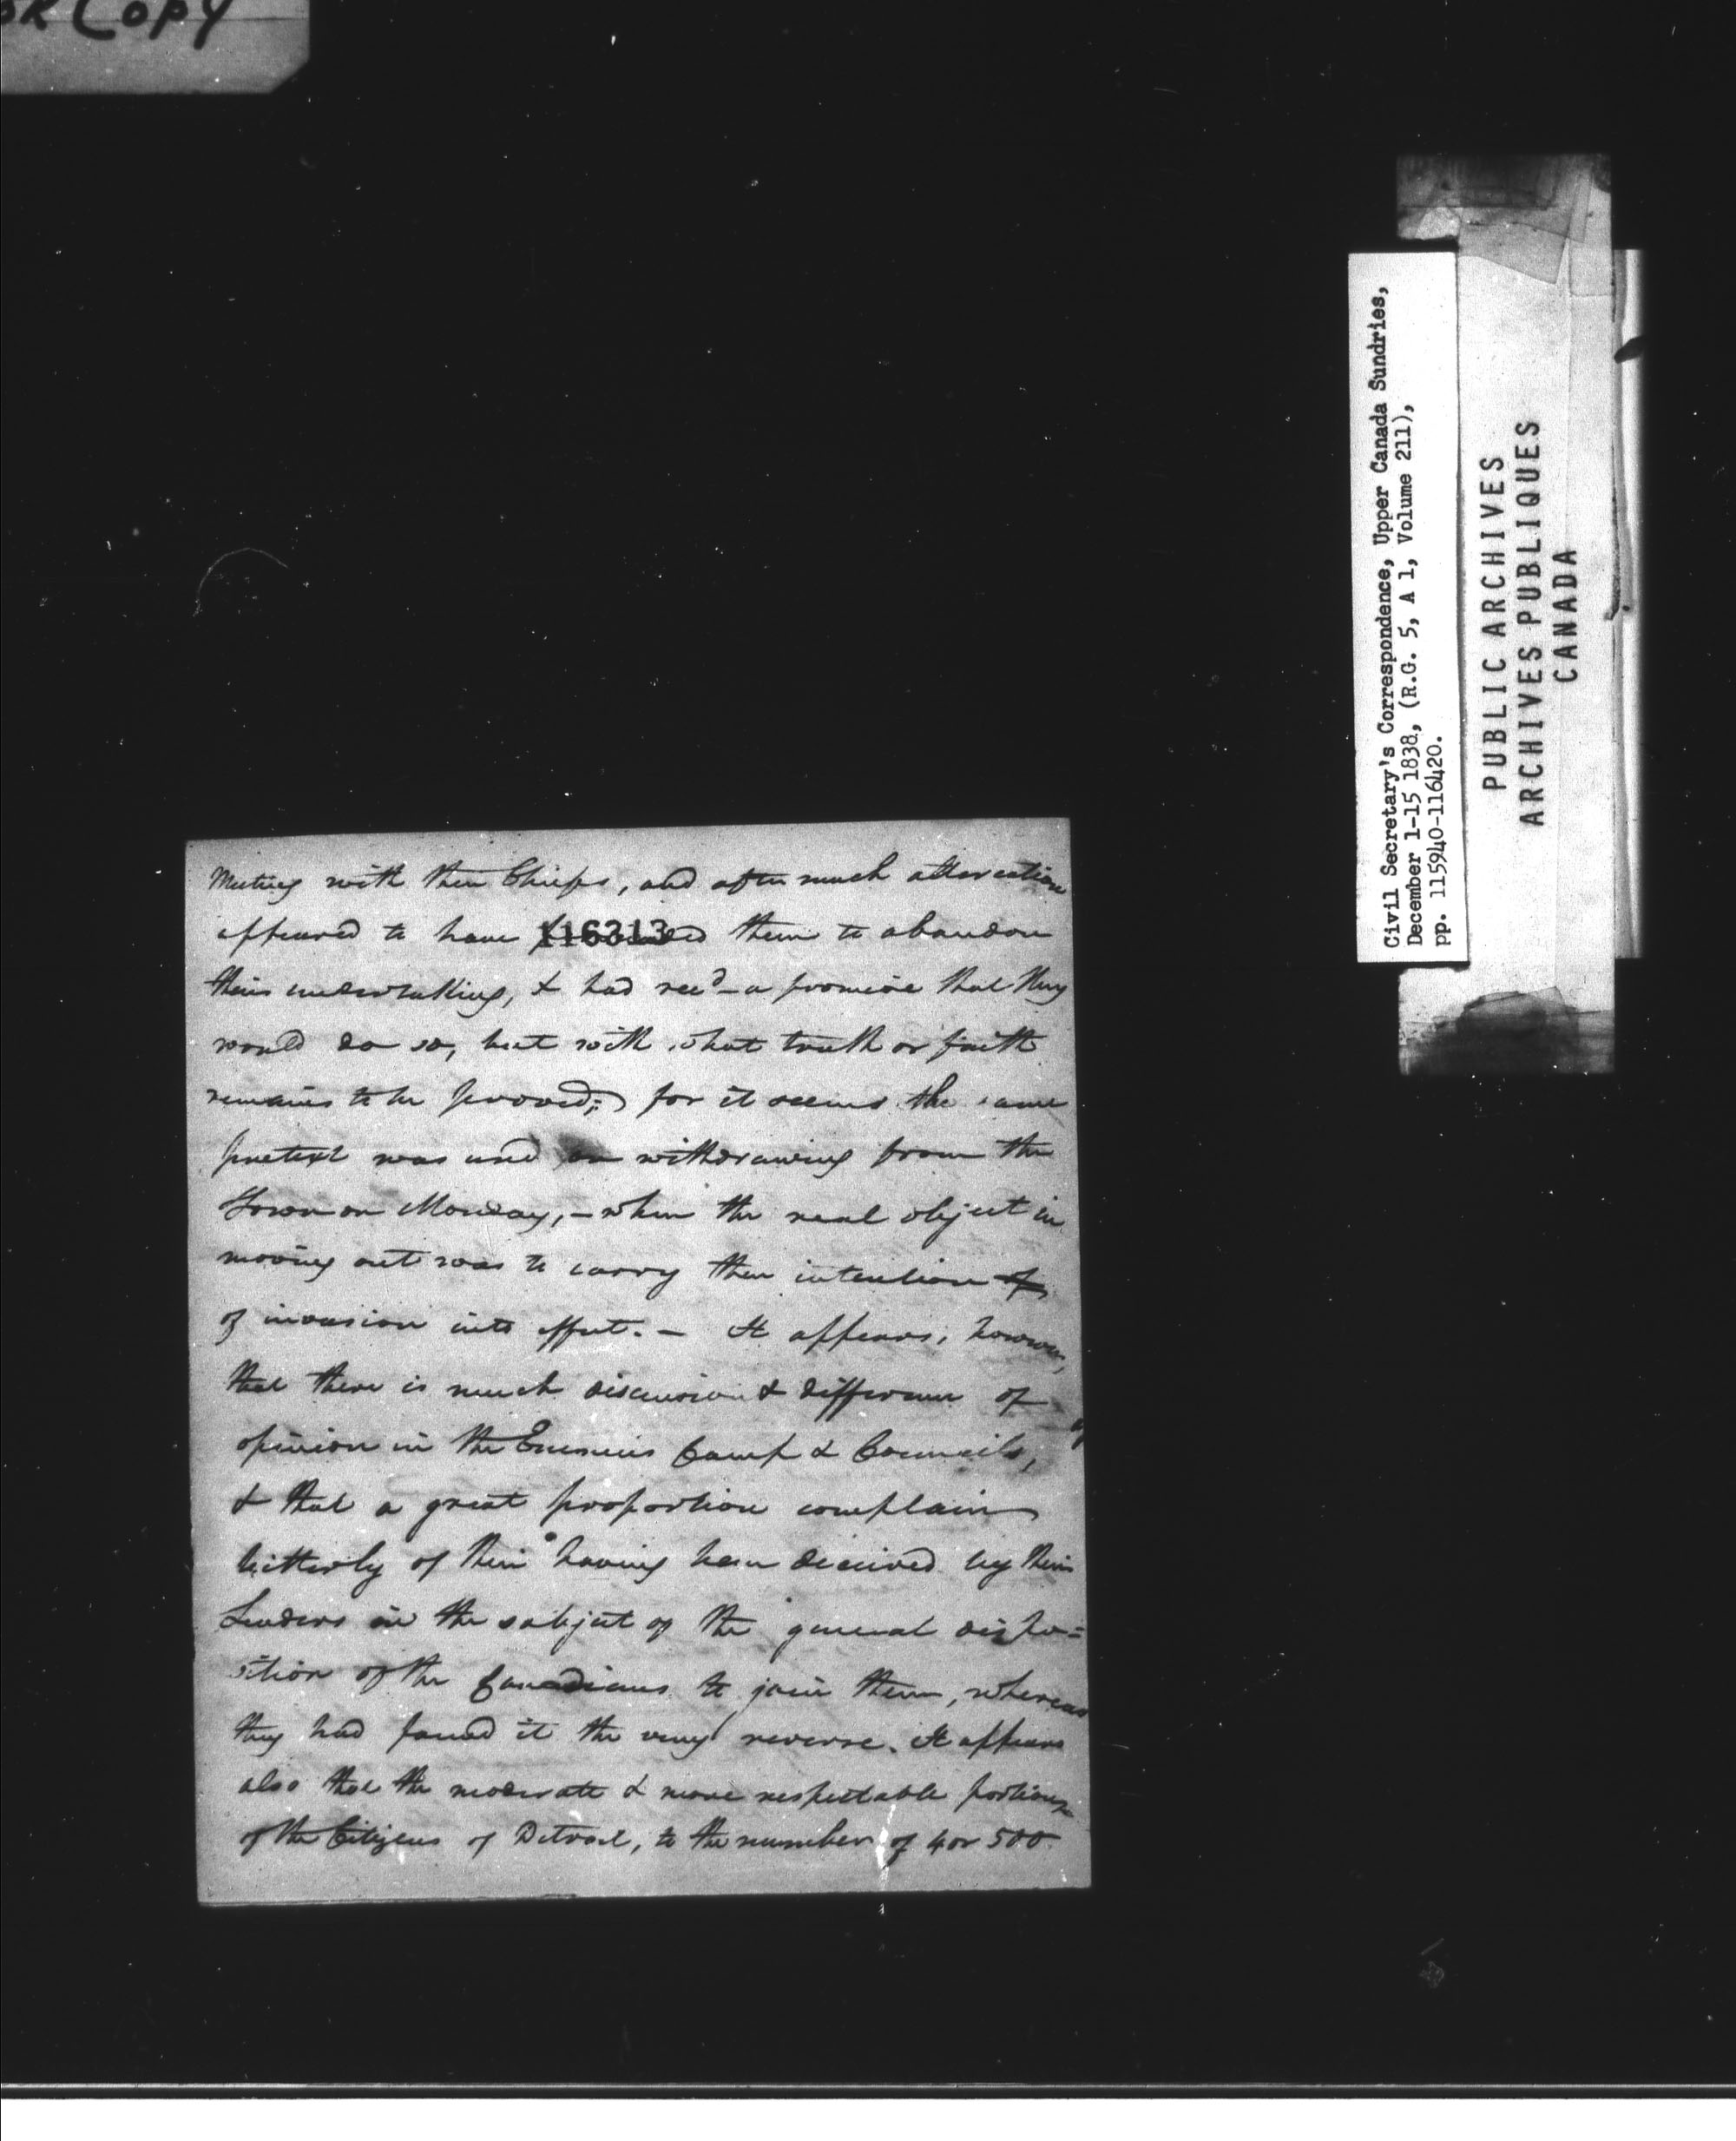 OR COPY
Civil Secretary's Correspondence, Upper Canada Sundries,
December 1-15 1838, (R.G. 5, A 1, Volume 211),
pp. 115940-116420.
PUBLIC ARCHIVES
ARCHIVES PUBLIQUES
CANADA
116313
Meeting with their Chiefs, and after much altercation
appeared to have them to abandon
their undertaking, & had rec'd - a promise that they
would do so, but with what truth or faith
remains to be proved; for it seems the same
pretext was used on withdrawing from the
Town on Monday, - when the real object in
moving out was to carry their intention of
of invasion into effect. - It appears, however,
that there is much discussion & difference of
opinion in the Enemies Camp & Councils,
& that a great proportion complain
bitterly of their having been deceived by their
Leaders on the subject of the general dispo=
sition of the Canadians to join them, whereas
they had found it the very reverse. It appears
also that the moderate & more respectable portion
of the Citizens of Detroit, to the number of 4 or 500